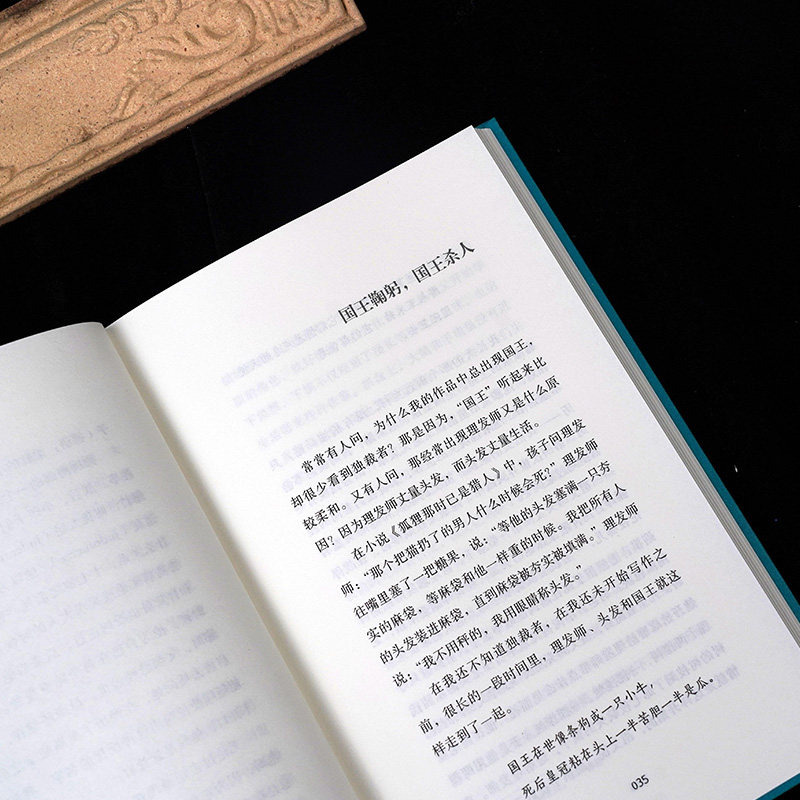 国王鞠躬，国王杀人
常常有人问，为什么我的作品中总出现国王，
却很少看到独裁者？那是因为，“国王”听起来比
较柔和。又有人问，那经常出现理发师又是什么原
因？因为理发师丈量头发，而头发丈量生活。
在小说《狐狸那时已是猎人》中，孩子问理发
师：“那个把猫扔了的男人什么时候会死？”理发师
往嘴里塞了一把糖果，说：“等他的头发塞满一只夯
实的麻袋，等麻袋和他一样重的时候。我把所有人
的头发装进麻袋，直到麻袋被夯实被填满。”理发师
说：“我不用秤的，我用眼睛称头发。”
在我还不知道独裁者，在我还未开始写作之
前，很长的一段时间里，理发师、头发和国王就这
样走到了一起。
国王在世像条狗或一只小牛，
死后皇冠粘在头上一半苦胆一半是瓜。
035